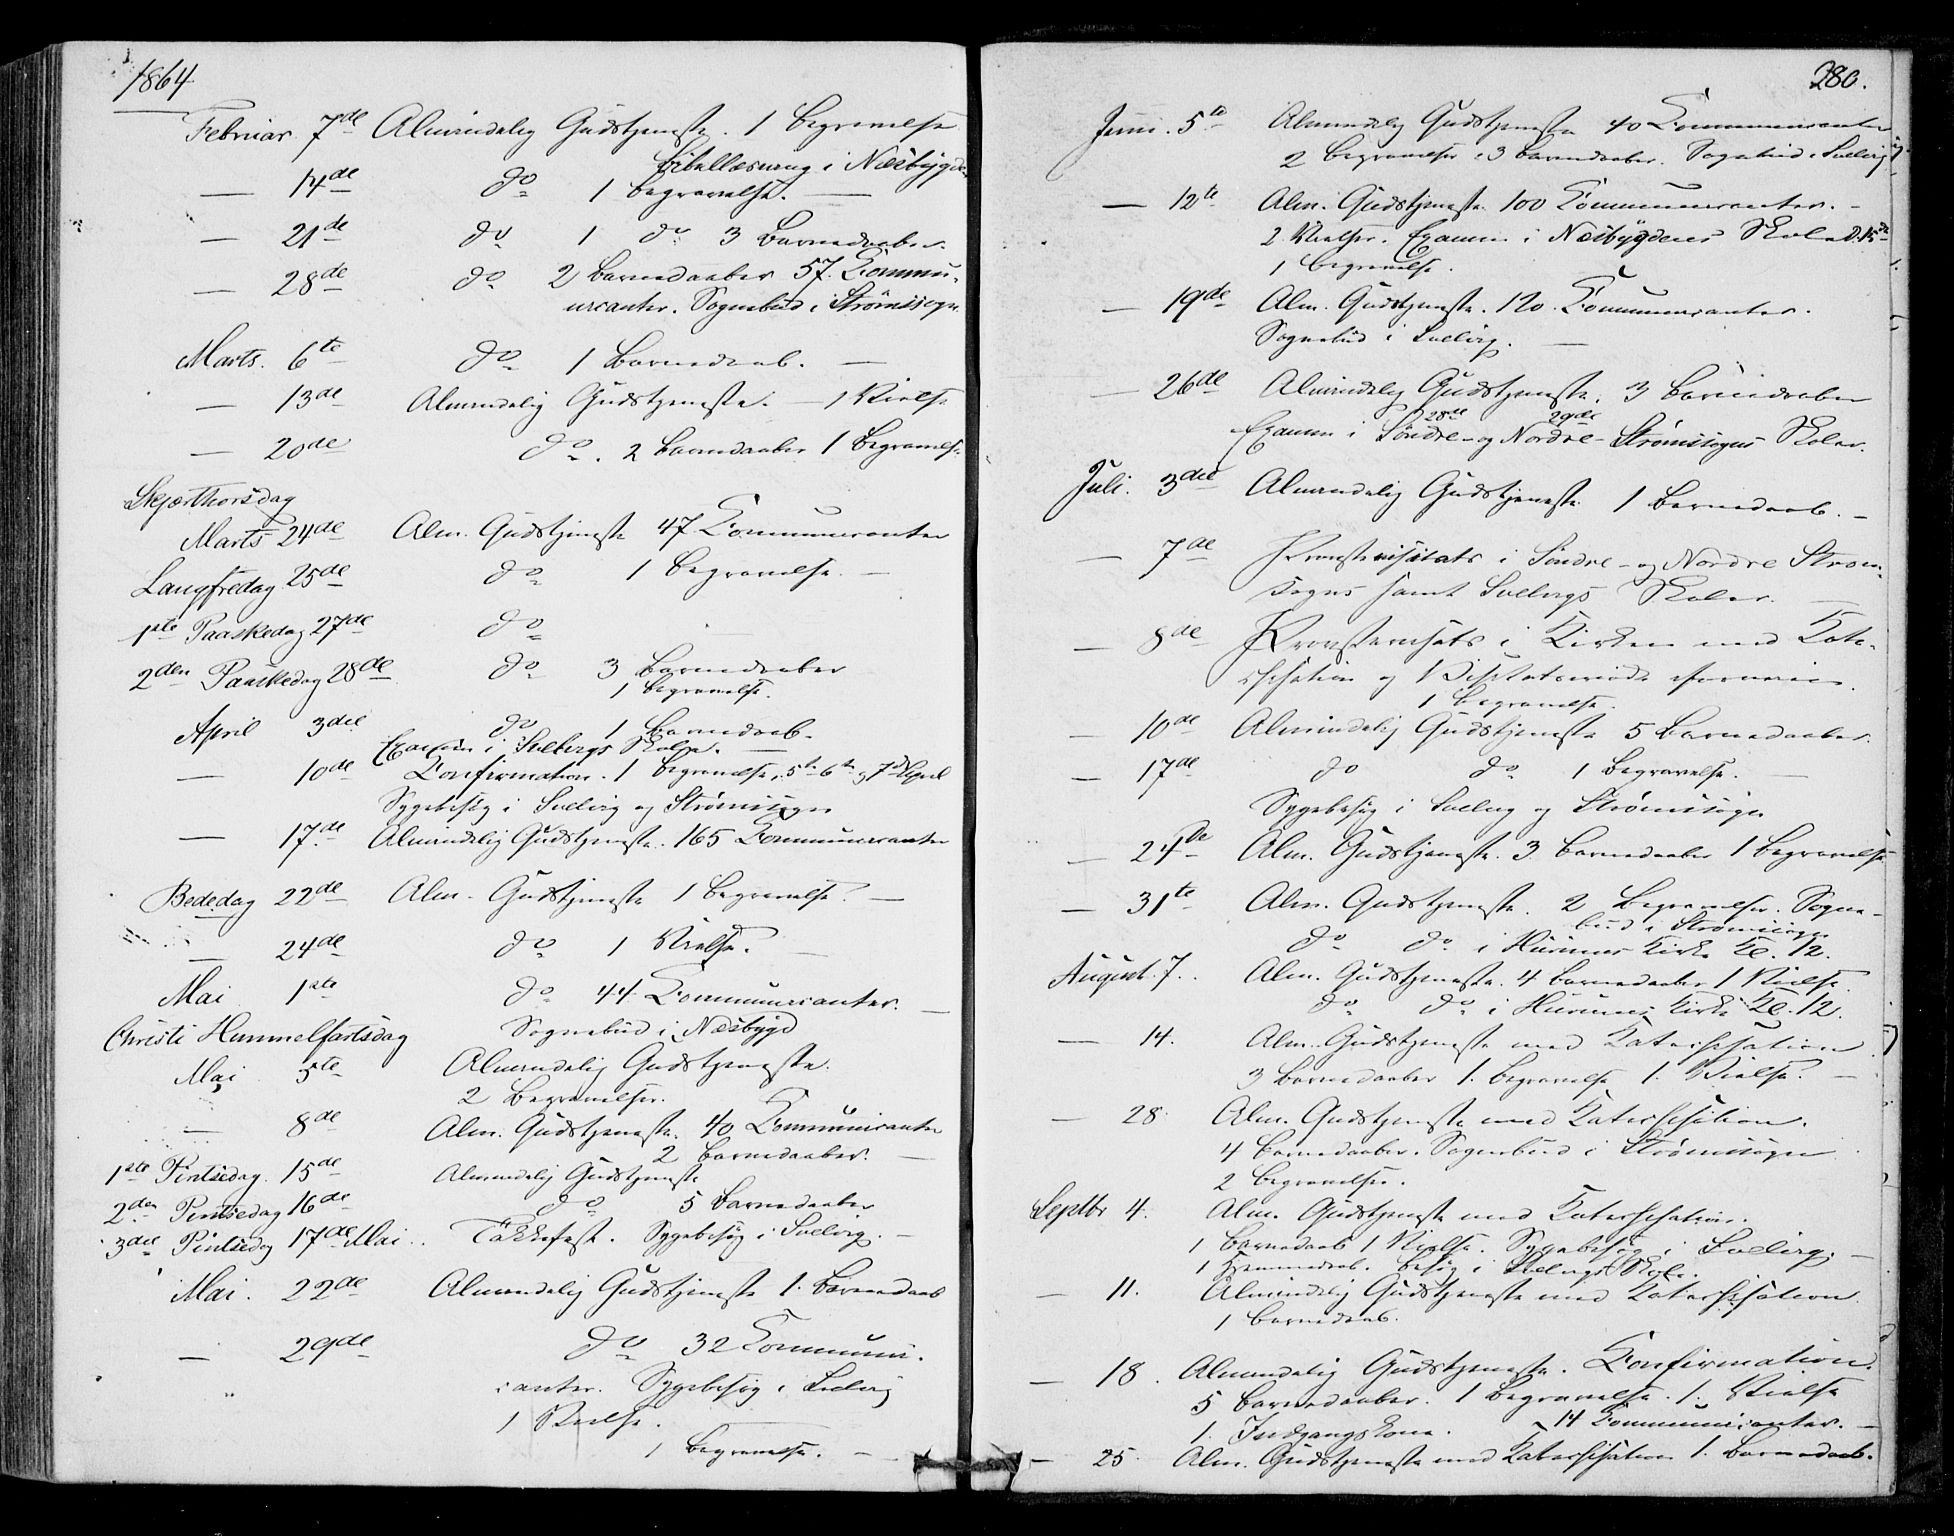 1864
Februar 7de Almindelig Gudstjeneste. 1 Begravelse
Bibellæsning i Næsbygden
— 14de do 1 Begravelse. —
— 21de do 1 do 3 Barnedaaber.
— 28de do 2 Barnedaaber 57 Commu-
nicanter. Sognebud i Strømssogn.
Marts. 6te do 1 Barnedaab. —
— 13de Almindelig Gudstjeneste. — 1 Vielse
— 20de do. 2 Barnedaaber 1 Begravelse.
Skjærthorsdag
Marts 24de Alm. Gudstjeneste 47 Communicanter
Langfredag 25de do 1 Begravelse. —
1ste Paaskedag 27de do —
2den Paaskedag 28de do 3 Barnedaaber
1 Begravelse.
April 3die do 1 Barnedaab.
Examen i Svelvigs Skole. —
— 10de Confirmation. 1 Begravelse, 5te 6te og 7de April
Sygebesøg i Svelvig og Strømssogn
— 17de Almindelig Gudstjeneste. 165 Communicanter
Bededag 22de Alm. Gudstjeneste 1 Begravelse. —
— 24de do 1 Vielse. —
Mai 1ste do 44 Communicanter. —
Sognebud i Næsbygd
Christi Himmelfartsdag
Mai 5te Almindelig Gudstjeneste.
2 Begravelser.
— 8de Alm. Gudstjeneste. 40 Communicanter
2 Barnedaaber. —
1ste Pintsedag. 15de Almindelig Gudstjeneste
2den Pintsedag 16de do 5 Barnedaaber
3die Pintsedag 17de Mai. Takkefest. Sygebesøg i Svelvig. —
Mai. 22de Almindelig Gudstjeneste 1. Barnedaab
— 29de do 32 Communi-
canter. Sygebesøg i Svelvig
1 Vielse.
1 Begravelse. —
280.
Juni. 5te Almindelig Gudstjeneste 40 Communicanter
2 Begravelser, 3 Barnedaaber. Sognebud i Svelvig
— 12te Alm. Gudstjeneste 100 Communicanter. —
2 Vielser. Examen i Næsbygdens Skole d. 15de
1 Begravelse.
— 19de Alm. Gudstjeneste. 120. Communicanter.
Sognebud i Svelvig. —
— 26de Almindelig Gudstjeneste. 3 Barnedaaber
28de 29de
Examen i Søndre- og Nordre- Strømssogns Skoler.
Juli. 3die Almindelig Gudstjeneste 1 Barnedaab. —
— 7de Provstevisitats i Søndre- og Nordre Strøm-
sogns samt Svelvigs Skoler. —
— 8de Provstevisitats i Kirken med Kate-
chisation og
1 Begravelse.
— 10de Almindelig Gudstjeneste 5 Barnedaaber.
— 17de do do 1 Begravelse. —
Sygebesøg i Svelvig og Strømssogn
— 24de Alm. Gudstjeneste. 3 Barnedaaber 1 Begravelse
— 31te Alm. Gudstjeneste. 2 Begravelser. Sogne-
bud i Strømssogn
do do i Hurums Kirke Kl. 12.
August. 7. Alm. Gudstjeneste. 4 Barnedaaber 1 Vielse
do do i Hurums Kirke Kl. 12.
— 14. Alm. Gudstjeneste med Katechisation
3 Barnedaaber 1. Begravelse 1. Vielse. —
— 28. Alm. Gudstjeneste med Katechisation.
4 Barnedaaber. Sognebud i Strømssogn
2 Begravelser.
Septbr 4. Alm. Gudstjeneste med Katechisation.
1 Barnedaab 1 Vielse. Sygebesøg i Svelvig. —
1 Hjemmedaab. Besøg i Svelvigs Skole.
— 11. Almindelig Gudstjeneste med Katechisation
1 Barnedaab.
— 18. Almindelig Gudstjeneste. Confirmation.
5 Barnedaaber. 1 Begravelse. 1. Vielse
1. Indgangskone. 14 Communicanter. —
— 25. Alm. Gudstjeneste med Katechisation 1. Barnedaab.